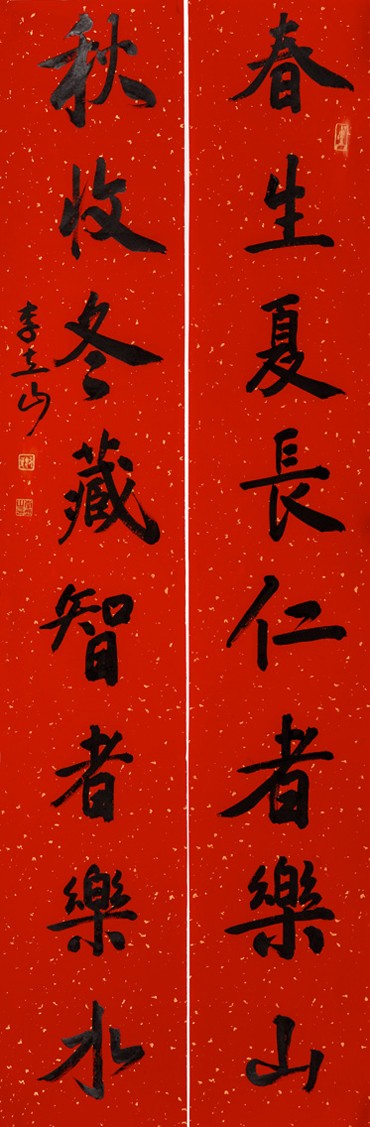 春生夏長仁者樂山
秋收冬藏智者樂水
李立山